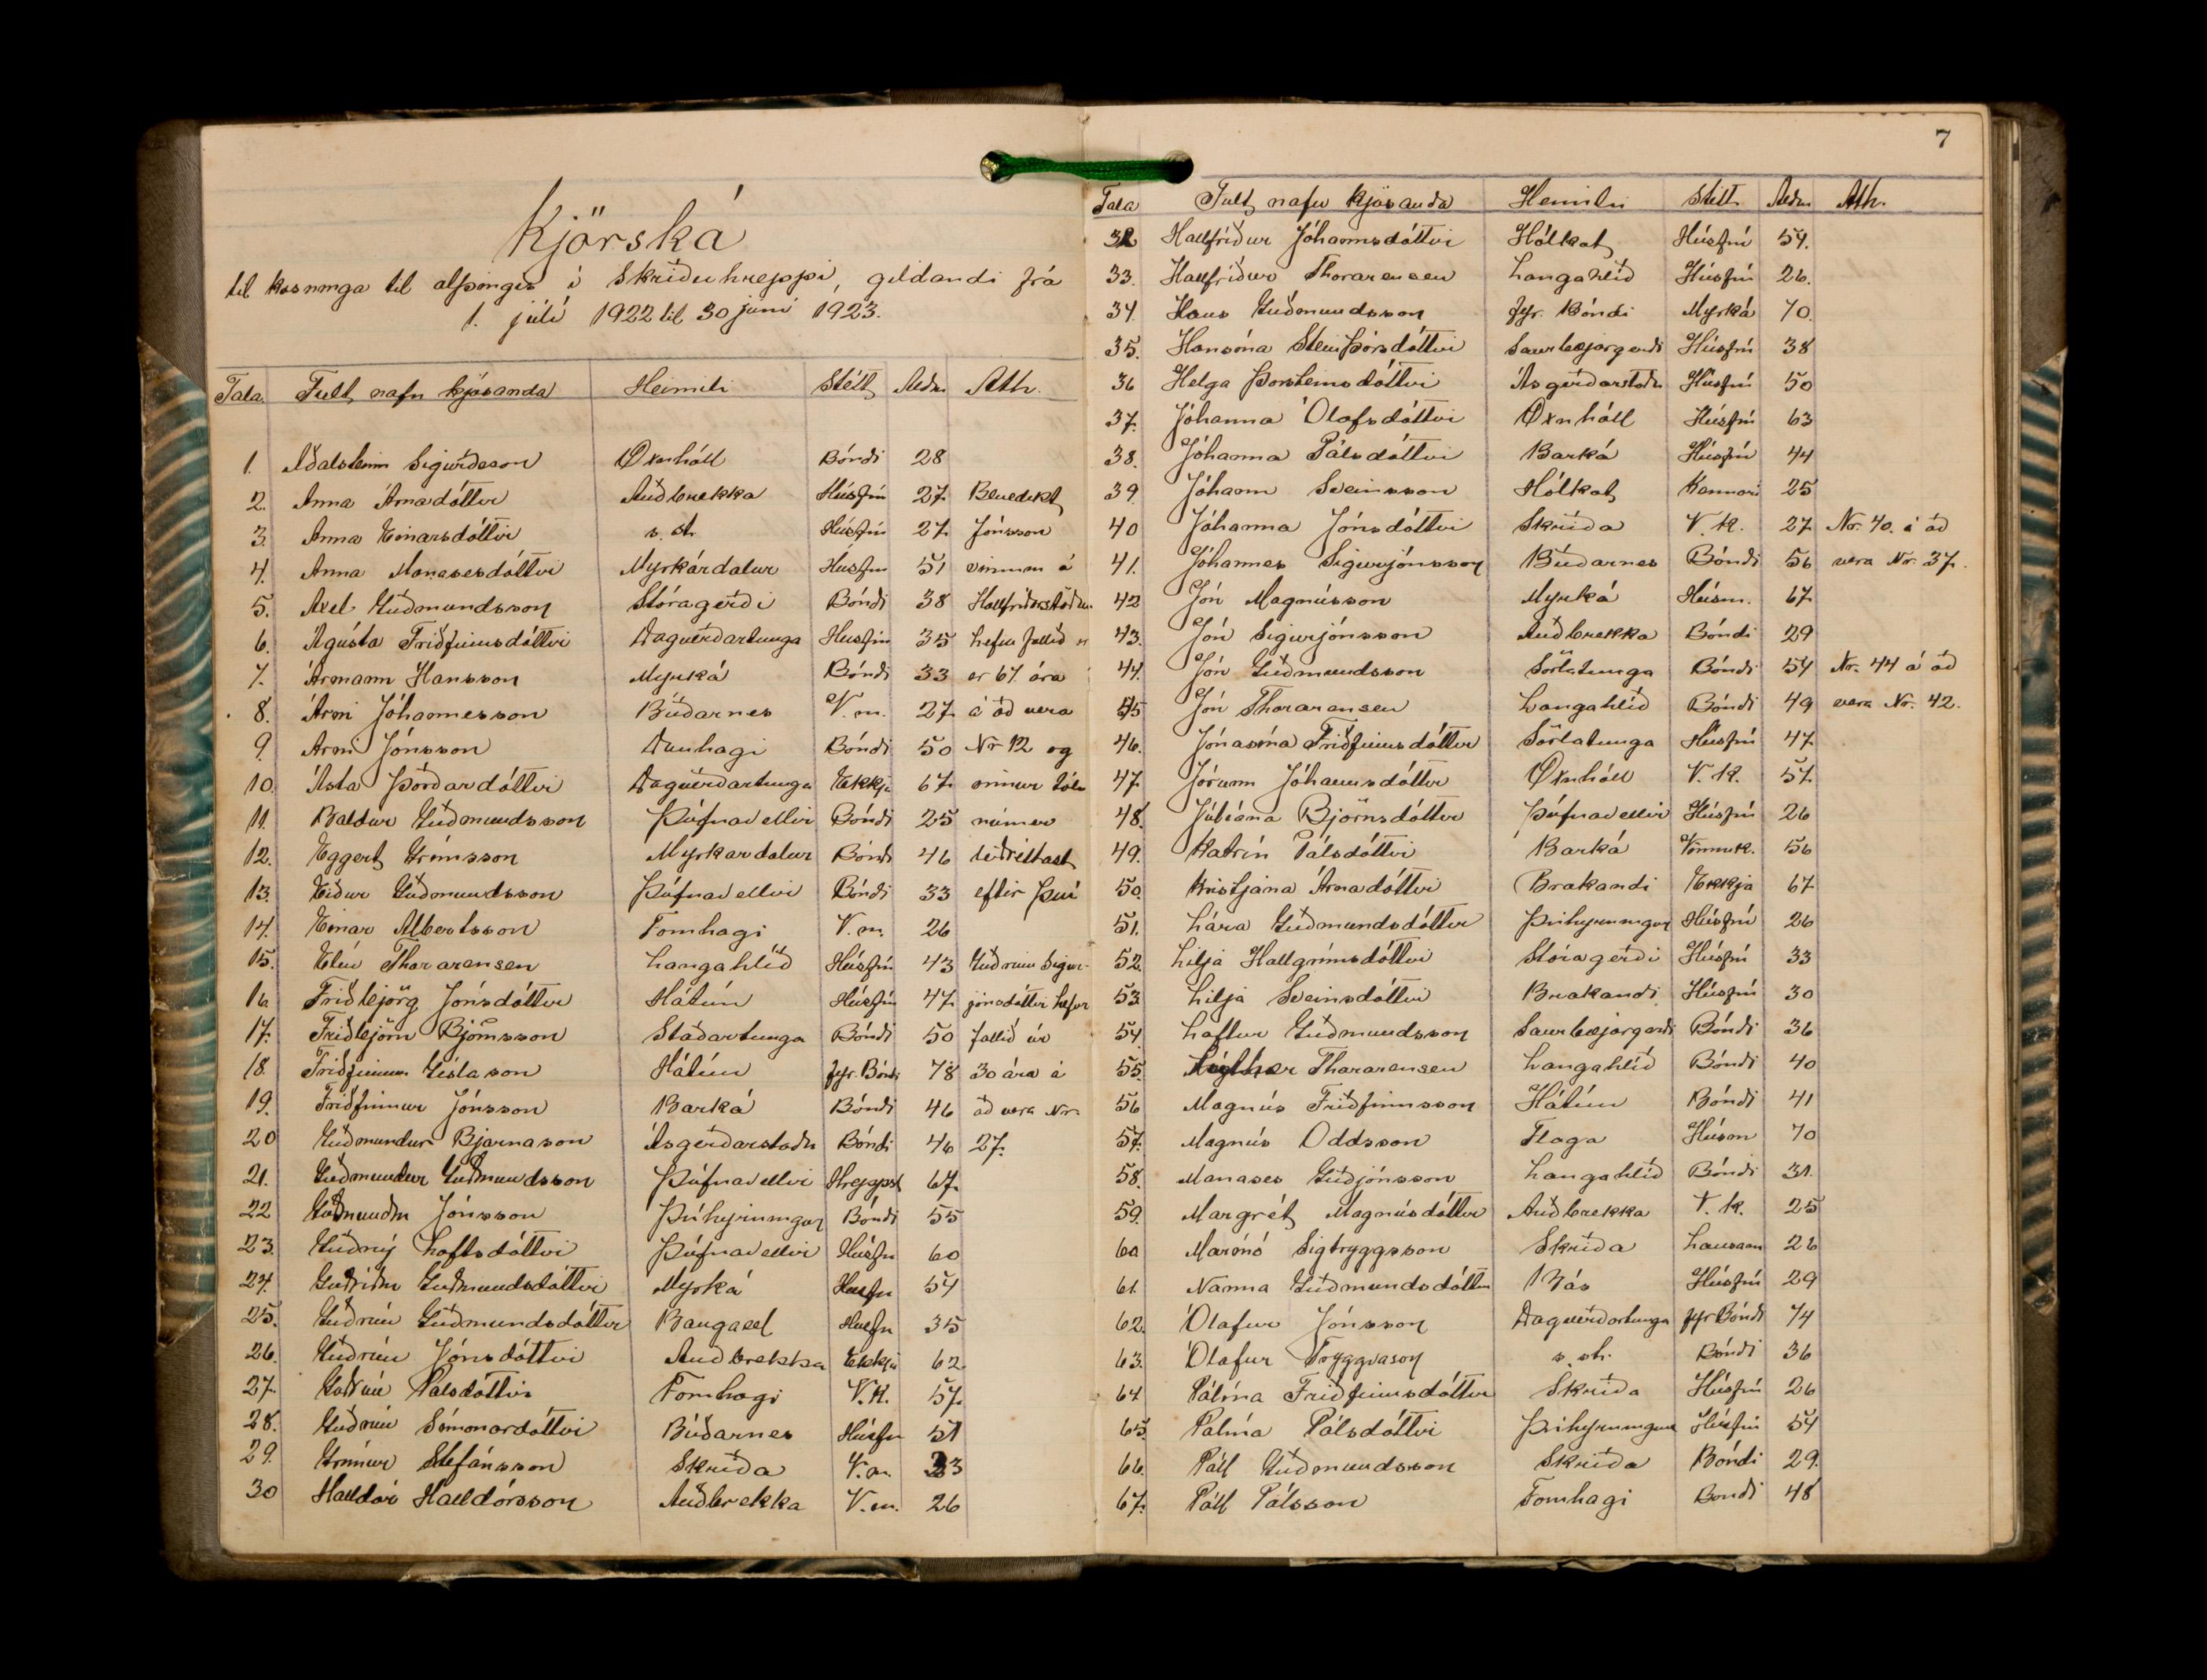 Kjörská
til kosninga til alþingis í Skriðuhreppi, gildandi frá
1. júlí 1922 til 30 júní 1923.
Tala Fult nafn kjósanda Heimili Stétt Aldur Ath.
1. Aðalsteinn Sigurðsson Öxnhóll Bóndi 28
2. Anna Árnadóttir Auðbrekka Húsfrú 27 Benedikt
3. Anna Einarsdóttir s. st. Húsfrú 27 Jónsson
4. Anna Manasesdóttir Myrkárdalur Húsfrú 51 vinnum á
5. Axel Guðmundsson Stóragerði Bóndi 38
6. Ágústa Friðfinnsdóttir Dagverðartunga Húsfrú 35 hefur fallið
7. Ármann Hansson Myrká Bóndi 33 er 67 ára
8. Árni Jóhannesson Búðarnes V.m. 27 á að vera
9. Árni Jónsson Dunhagi Bóndi 50 Nr 12 og
10. Ásta Þórðardóttir Dagverðartunga Ekkja 67 önnur tölu
11. Baldur Guðmundsson Þúfnavellir Bóndi 25 númer
12. Eggert Grímsson Myrkardalur Bóndi 46 leiðréttast
13. Eiður Guðmundsson Þúfnavellir Bóndi 33 eftir því
14. Einar Albertsson Tornhagi V.m. 26
15. Elín Thorarensen Langahlíð Húsfrú 43 Guðrún Sigur-
16. Friðbjörg Jónsdóttir Hátún Húsfrú 47 jónsdóttir hefur
17. Friðbjörn Björnsson Staðartunga Bóndi 50 fallið úr
18. Friðfinnur Gíslason Hátún fyr. Bóndi 78 30 ára á
19. Friðfinnur Jónsson Barká Bóndi 46 að vera Nr.
20 Guðmundur Bjarnason Ásgerðarstaðir Bóndi 46 27.
21. Guðmundur Guðmundsson Þúfnavellir Hreppst 67
22 Guðmundur Jónsson Þríhyrningur Bóndi 55
23. Guðný Loftsdóttir Þúfnavellir Húsfrú 60
24. Guðríður Guðmundsdóttir Myrká Húsfrú 54
25. Guðrún Guðmundsdóttir Baugasel Húsfrú 35
26. Guðrún Jónsdóttir Auðbrekka Ekkja 62
27. Guðrún Pálsdóttir Tornhagi V.K. 57
28. Guðrún Símonardóttir Búðarnes Húsfrú 51
29. Grímur Stefánsson Skriða V.m. 33
30 Halldór Halldórsson Auðbrekka V.m. 26
7
Tala Fult nafn kjósanda Heimili Stétt Aldur Ath.
32 Hallfríður Jóhannsdóttir Hólkot Húsfrú 54.
33. Hallfríður Thorarensen Langahlíð Húsfrú 26.
34. Hans Guðmundsson fyr. Bóndi Myrká 70.
35. Hansína Steinþórsdóttir Saurbæjargerði Húsfrú 38
36 Helga Þorsteinsdóttir Ásgerðarstaðir Húsfrú 50
37. Jóhanna Ólafsdóttir Öxnhóll Húsfrú 63
38. Jóhanna Pálsdóttir Barká Húsfrú 44
39. Jóhann Sveinsson Hólkot Kennari 25
40 Jóhanna Jónsdóttir Skriða V.K. 27 Nr. 40. á að
41. Jóhannes Sigurjónsson Búðarnes Bóndi 56 vera Nr. 37.
42 Jón Magnússon Myrká Húsm. 67
43. Jón Sigurjónsson Auðbrekka Bóndi 29
44. Jón Guðmundsson Sörlatunga Bóndi 54 Nr. 44 á að
45 Jón Thorarensen Langahlíð Bóndi 49 vera Nr. 42.
46. Jónasína Friðfinnsdóttir Sörlatunga Húsfrú 47
47. Jórunn Jóhannsdóttir Öxnhóll V.K. 57
48. Júlíana Björnsdóttir Þúfnavellir Húsfrú 26
49. Katrín Pálsdóttir Barká Vinnuk. 56
50. Kristjana Árnadóttir Brakandi Ekkja 67
51. Lára Guðmundsdóttir Þríhyrningur Húsfrú 26
52. Lilja Hallgrímsdóttir Stóragerði Húsfrú 33
53 Lilja Sveinsdóttir Brakandi Húsfrú 30
54 Loftur Guðmundsson Saurbæjargerði Bóndi 36
55. Thorarensen Langahlíð Bóndi 40
56 Magnús Friðfinnsson Hátún Bóndi 41
57. Magnús Oddsson Flaga Húsm 70
58. Manases Guðjónsson Langahlíð Bóndi 31.
59. Margrét Magnúsdóttir Auðbrekka V.K. 25
60 Marinó Sigtryggsson Skriða Lausam 26
61. Nanna Guðmundsdóttir Ás Húsfrú 29
62. Ólafur Jónsson Dagverðartunga fyr Bóndi 74
63. Ólafur Tryggvason s. st. Bóndi 36
64 Pálína Friðfinnsdóttir Skriða Húsfrú 26
65. Pálína Pálsdóttir Þríhyrningur Húsfrú 54
66. Páll Guðmundsson Skriða Bóndi 29.
67. Páll Pálsson Tornhagi Bóndi 48